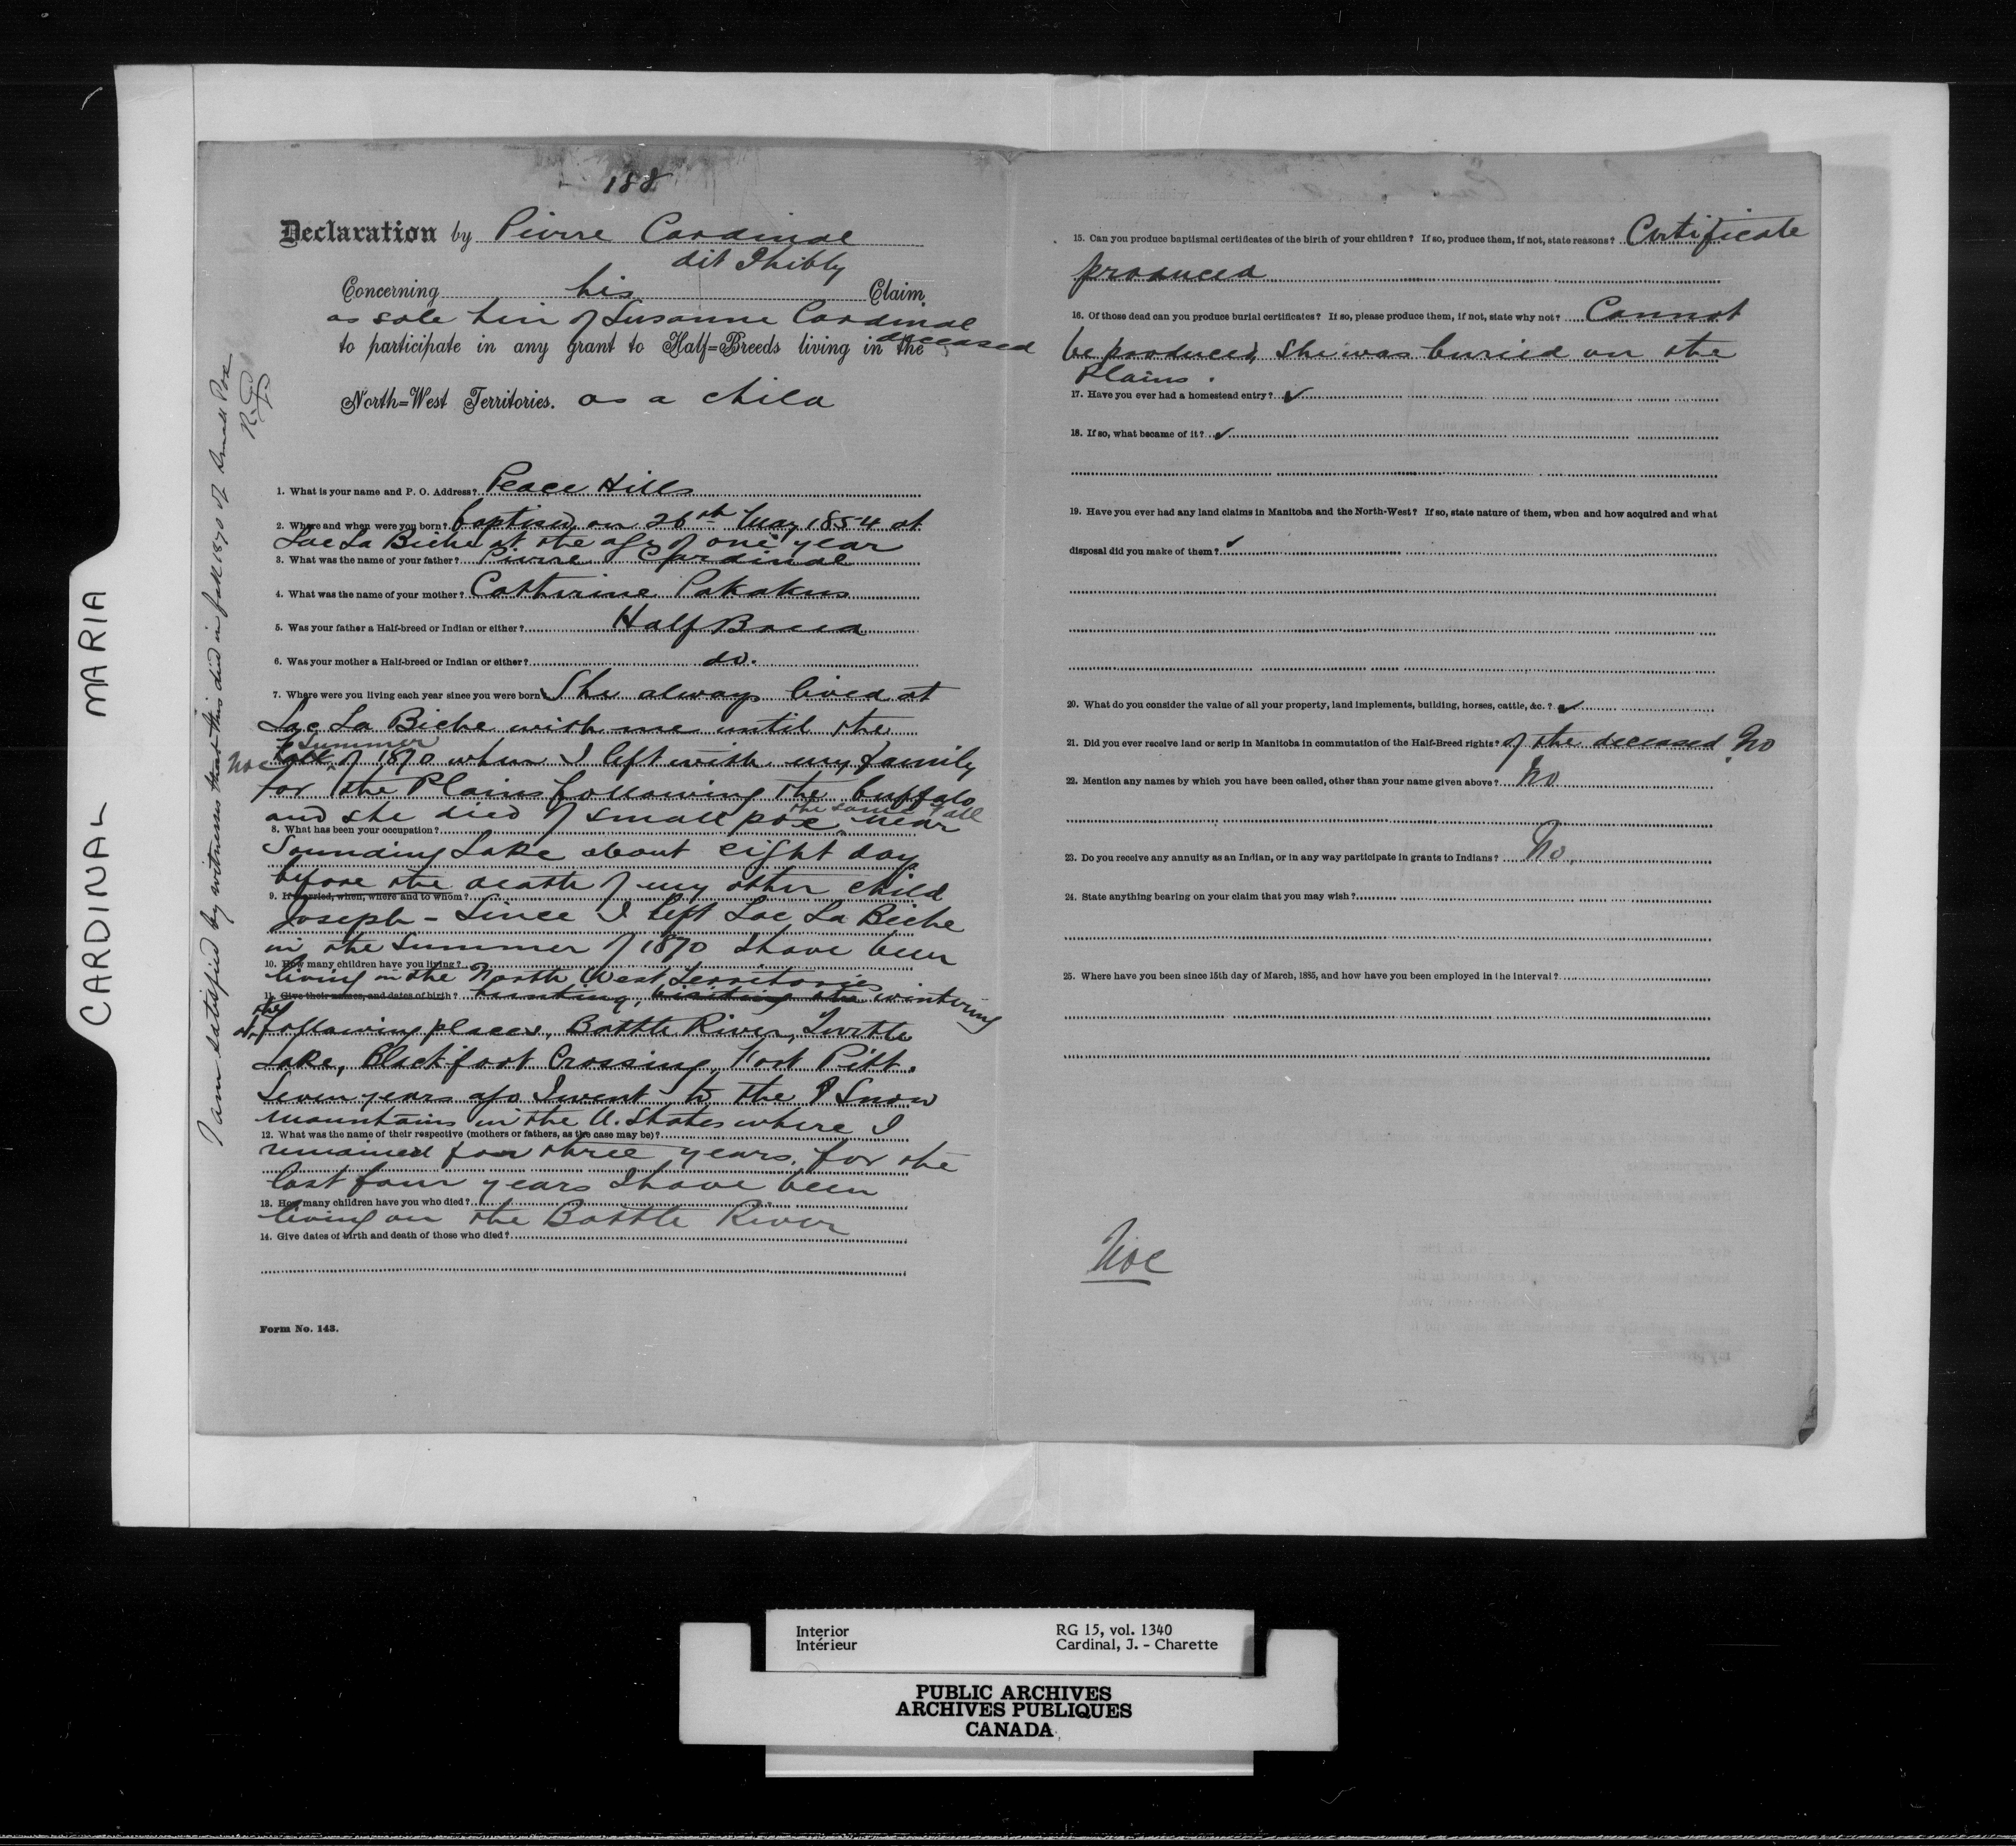 CARDINAL MARIA
188
Declaration by Pierre Cardinal
dit Thibly
Concerning his Claim
as sole heir of Susanne Cardinal
deceased
to participate in any grant to Half=Breeds living in the
North=West Territories. as a child
I am satisfied by witness that this died in fall 1870 of Small Pox
1. What is your name and P. O. Address? Peace Hills
2. Where and when were you born? baptised on 26th May 1854 at
Lac La Biche at the age of one year
3. What was the name of your father? Pierre Cardinal
4. What was the name of your mother? Catherine Pakakus
5. Was your father a Half-breed or Indian or either? Half Breed
6. Was your mother a Half-breed or Indian or either? do.
7. Where were you living each year since you were born She always lived at
Lac La Biche with me until the
summer
Noe fall of 1870 when I left with my family
for the Plains following the buffalo
the same fall
and she died of small pox near
8. What has been your occupation?
Sounding Lake about eight days
before the death of my other child
9. If married, when, where and to whom?
Joseph - Since I left Lac La Biche
in the Summer of 1870 I have been
10. How many children have you living?
living in the North West Territories
11. Give their names, and dates of birth? hunting, visiting the wintering
the
at following places, Battle River, Turtle
Lake, Blackfoot Crossing, Fort Pitt.
Seven years ago I went to the Snow
mountains in the U. States where I
12. What was the name of their respective (mothers or fathers, as the case may be)?
remained for three years, for the
last four years I have been
13. How many children have you who died?
living on the Battle River
14. Give dates of birth and death of those who died?
Form No. 143.
15. Can you produce baptismal certificates of the birth of your children? If so, produce them, if not, state reasons? Certificate
produced
16. Of those dead can you produce burial certificates? If so, please produce them, if not, state why not? Cannot
be produced, she was buried on the
Plains.
17. Have you ever had a homestead entry? ✓
18. If so, what became of it? ✓
19. Have you ever had any land claims in Manitoba and the North-West? If so, state nature of them, when and how acquired and what
disposal did you make of them? ✓
20. What do you consider the value of all your property, land implements, building, horses, cattle, &c.? ✓
21. Did you ever receive land or scrip in Manitoba in commutation of the Half-Breed rights? of the deceased No
22. Mention any names by which you have been called, other than your name given above? No
23. Do you receive any annuity as an Indian, or in any way participate in grants to Indians? No.
24. State anything bearing on your claim that you may wish?
25. Where have you been since 15th day of March, 1885, and how have you been employed in the interval?
Noe
Interior
Intérieur
RG 15, vol. 1340
Cardinal, J. - Charette
PUBLIC ARCHIVES
ARCHIVES PUBLIQUES
CANADA